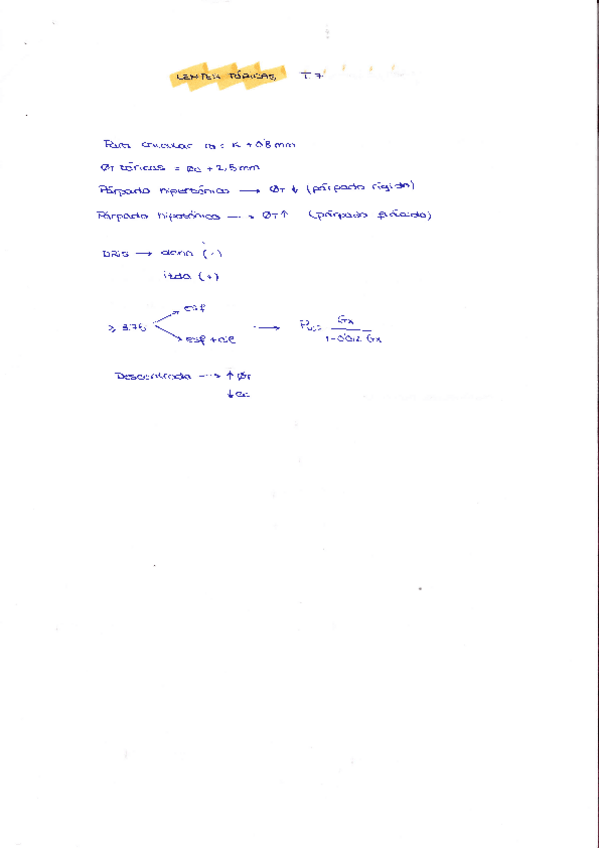 LENTES TÓRICAS, T 7
Para calcular r₀ = K + 0'8 mm
ØT tóricas = Øc + 2,5 mm
Párpado hipertónico → ØT ↓ (párpado rígido)
Párpado hipotónico → ØT ↑ (párpado flácido)
→ dcha (-)
izda (+)
esf
≥ 3.75
esf + cil → Gx
1 - 0'012 Gx
Descentrada → ↑ ØT
↓